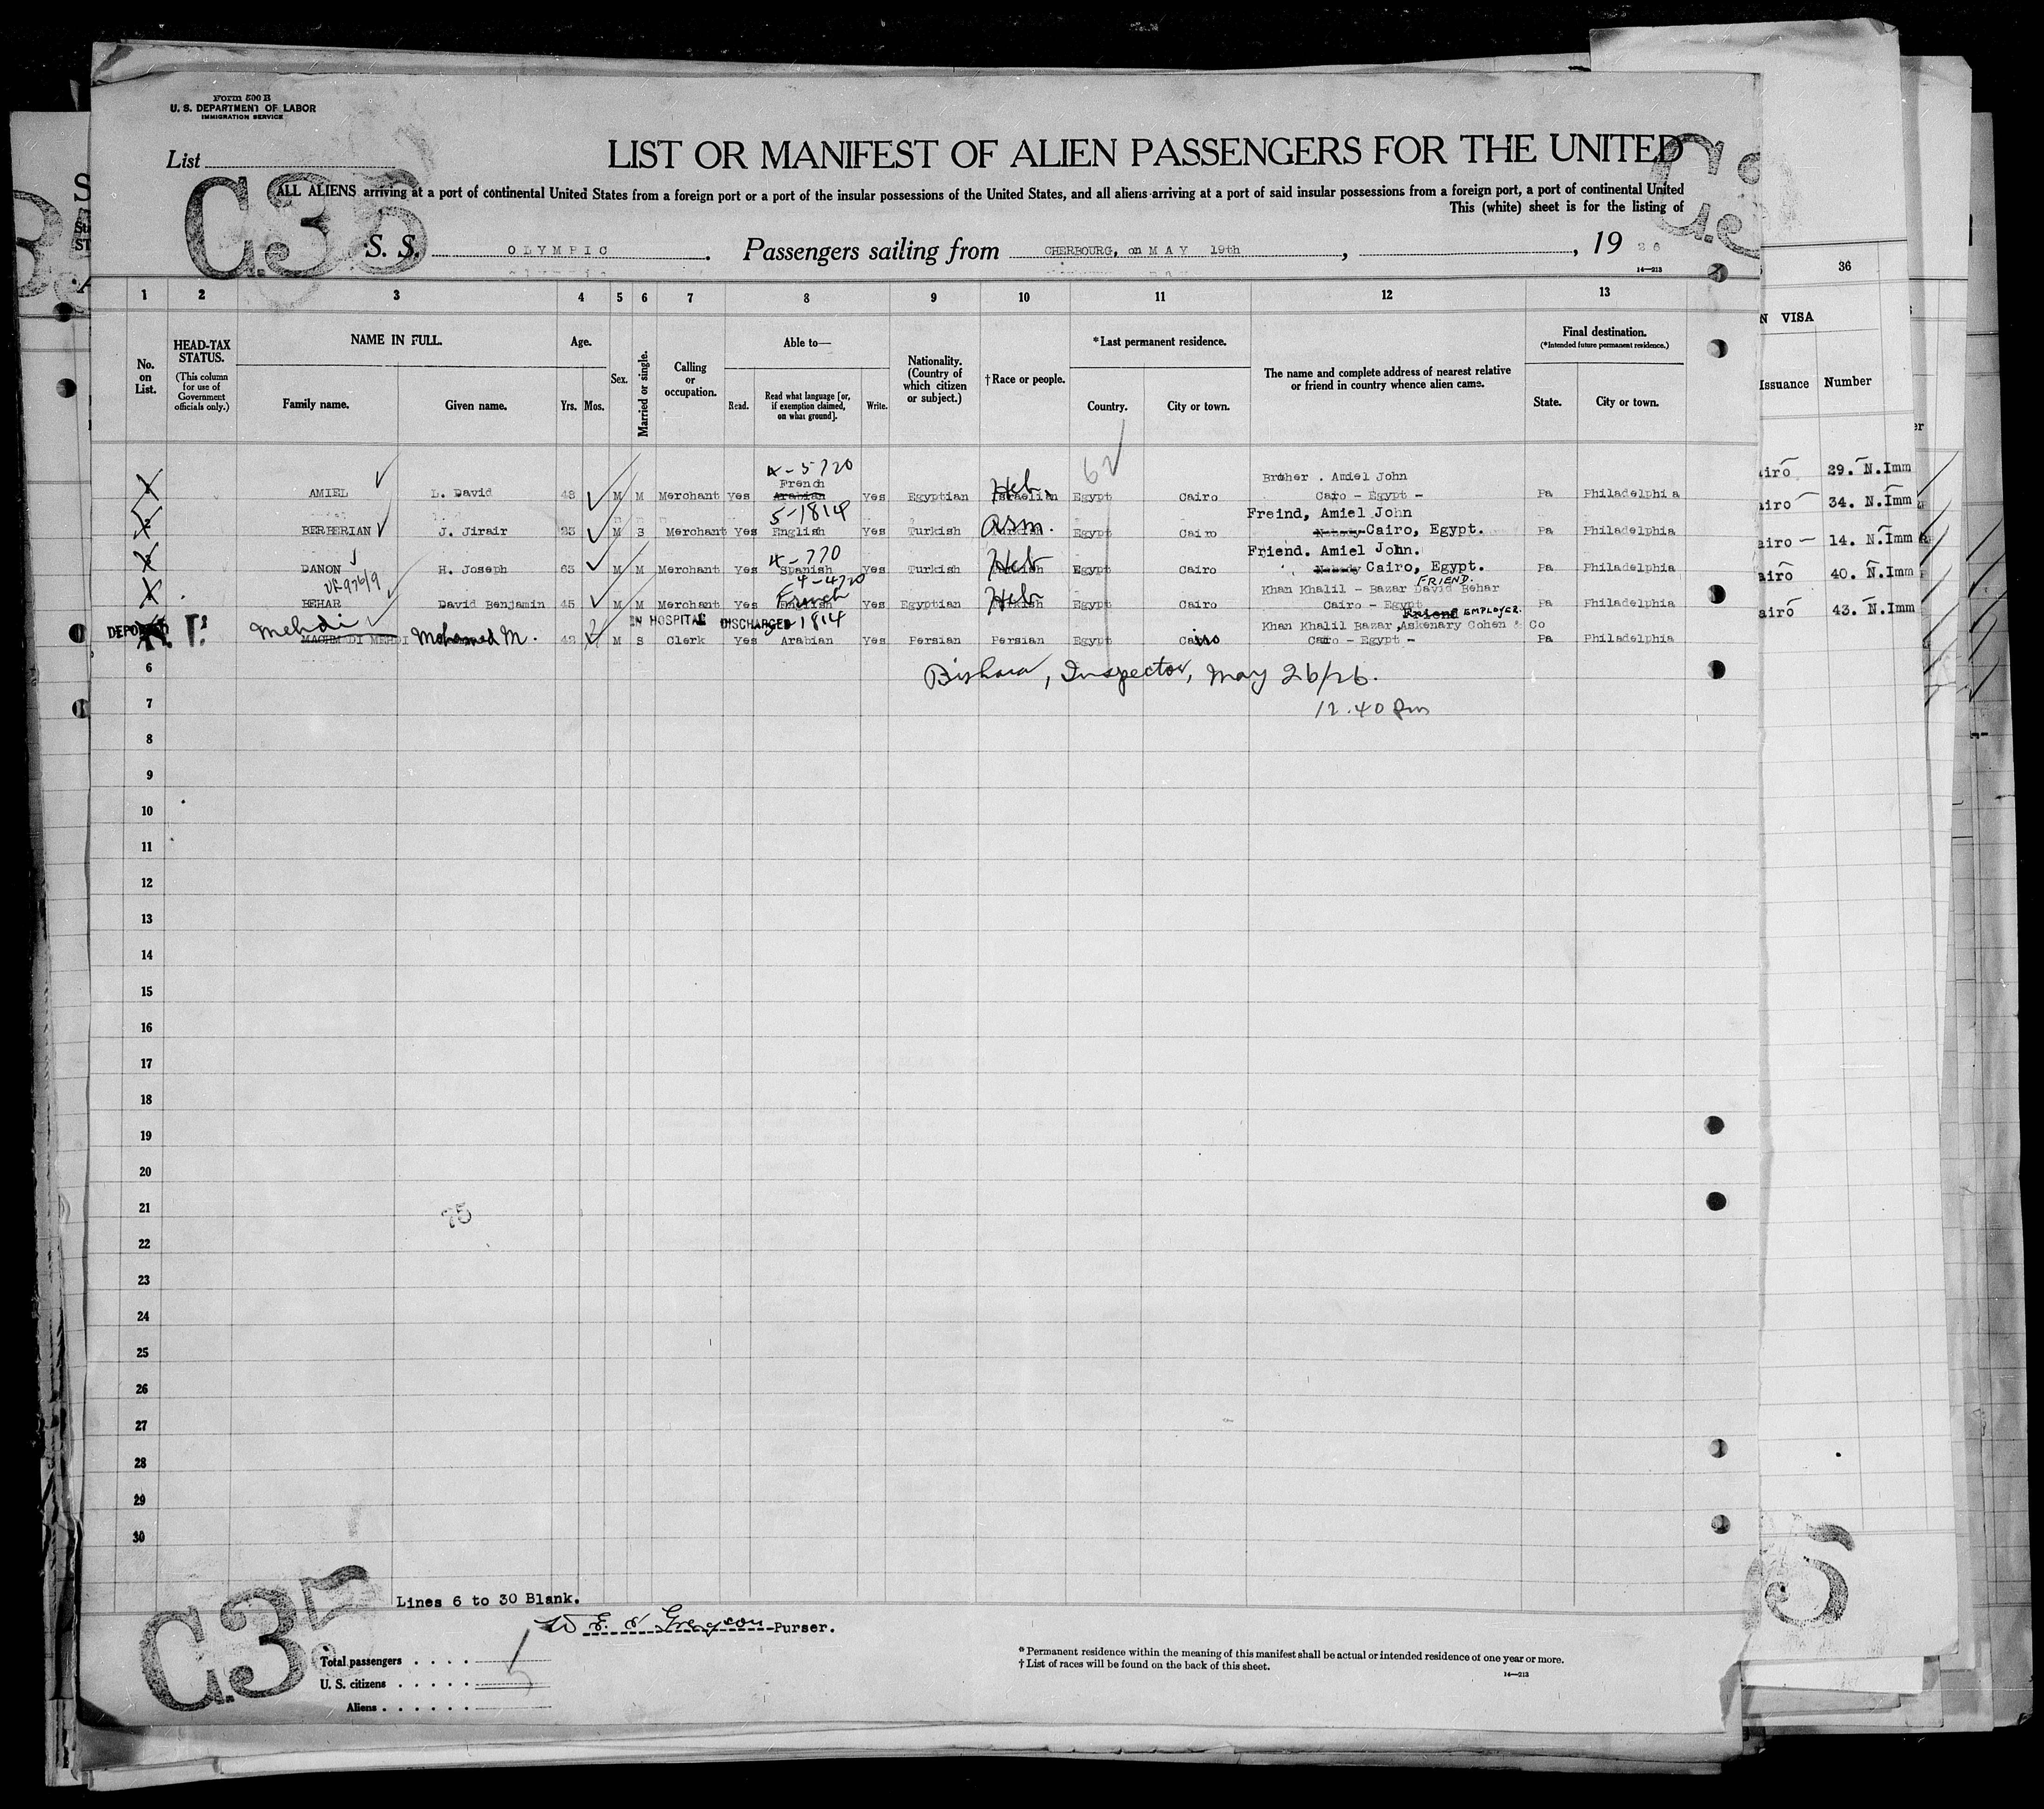 Form 500 B
U. S. DEPARTMENT OF LABOR
IMMIGRATION SERVICE
List
LIST OR MANIFEST OF ALIEN PASSENGERS FOR THE UNITED
ALL ALIENS arriving at a port of continental United States from a foreign port or a port of the insular possessions of the United States, and all aliens arriving at a port of said insular possessions from a foreign port, a port of continental United
This (white) sheet is for the listing of
C35
S. S. OLYMPIC. Passengers sailing from CHERBOURG, on MAY 19th, , 19 26
14—213
1 2 3 4 5 6 7 8 9 10 11 12 13 36
No. on List.
HEAD-TAX STATUS.
(This column for use of Government officials only.)
NAME IN FULL.
Family name. Given name.
Age.
Yrs. Mos.
Sex.
Married or single.
Calling or occupation.
Able to—
Read. Read what language [or, if exemption claimed, on what ground]. Write.
Nationality. (Country of which citizen or subject.)
†Race or people.
*Last permanent residence.
Country. City or town.
The name and complete address of nearest relative or friend in country whence alien came.
Final destination.
(*Intended future permanent residence.)
State. City or town.
N VISA
Issuance Number
62
4-5720
French Broher . Amiel John
AMIEL L. David 48 M M Merchant Yes Arabian Yes Egyptian Heb. Israelian Egypt Cairo Cairo - Egypt - Pa Philadelphia
airo 29. N.Imm
5-1814 Freind, Amiel John
BERBERIAN J. Jirair M S Merchant Yes English Yes Turkish Arm. Egypt Cairo Nobody Cairo, Egypt. Pa Philadelphia
airo 34. N.Imm
4-770 Friend. Amiel John.
DANON H. Joseph 63 M M Merchant Yes Spanish Yes Turkish Heb Egypt Cairo Nobody Cairo, Egypt. Pa Philadelphia
airo 14. N.Imm
4-4720 FRIEND.
Khan Khalil - Bazar David Behar
BEHAR David Benjamin 45 M M Merchant Yes English French Yes Egyptian Heb Egypt Cairo Cairo - Egypt Pa Philadelphia
airo 40. N.Imm
IN HOSPITAL DISCHARGED 1814 Friend EMPLOYER.
Mehdi Khan Khalil Bazar, Askenary Cohen & Co
DEPORTED MACHMUDI MEHDI Mohamed M. 42 M S Clerk Yes Arabian Yes Persian Persian Egypt Cairo Cairo - Egypt - Pa Philadelphia
airo 43. N.Imm
6 Bishara, Inspector, May 26/26.
7 12.40 pm
8
9
10
11
12
13
14
15
16
17
18
19
20
21
22
23
24
25
26
27
28
29
30
Lines 6 to 30 Blank.
Purser.
C35
Total passengers . . . . 5
U. S. citizens . . . . .
Aliens . . . . . .
*Permanent residence within the meaning of this manifest shall be actual or intended residence of one year or more.
†List of races will be found on the back of this sheet.
14—213